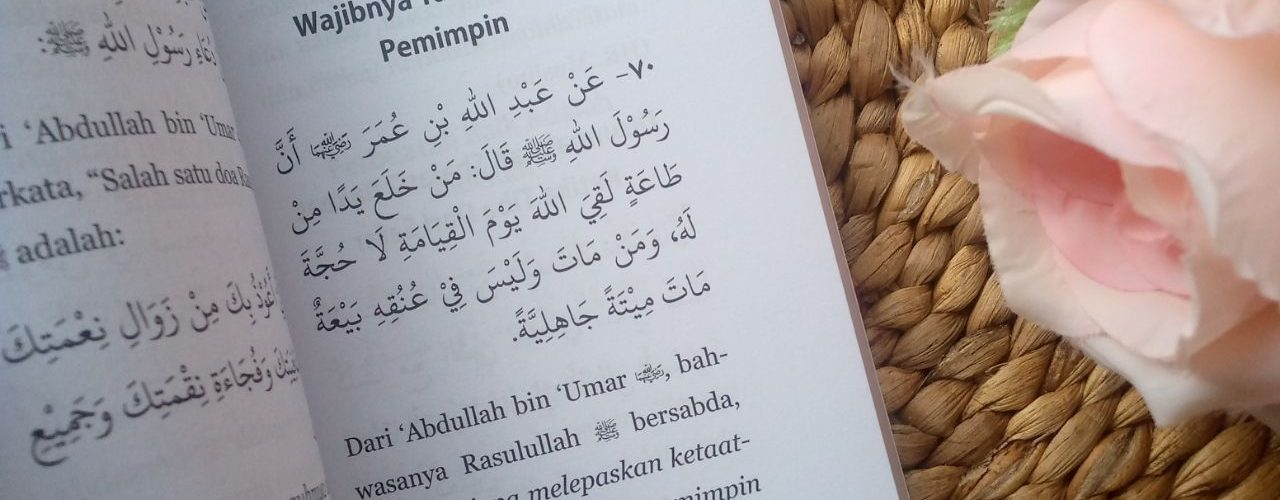 رَسُوْلِ اللهِ ﷺ:
'Abdullah bin 'Umar
"Salah satu doa
adalah:
بِكَ مِنْ زَوَالِ نِعْمَتِكَ
وَفُجَاءَةِ نِقْمَتِكَ وَجَمِيْعِ
Wajibnya
Pemimpin
٧٠- عَنْ عَبْدِ اللهِ بْنِ عُمَرَ رضي الله عنهما أَنَّ
رَسُوْلَ اللهِ ﷺ قَالَ: مَنْ خَلَعَ يَدًا مِنْ
طَاعَةٍ لَقِيَ اللهَ يَوْمَ الْقِيَامَةِ لَا حُجَّةَ
لَهُ، وَمَنْ مَاتَ وَلَيْسَ فِيْ عُنُقِهِ بَيْعَةٌ
مَاتَ مِيْتَةً جَاهِلِيَّةً.
Dari 'Abdullah bin 'Umar رضي الله عنهما, bah-
wasanya Rasulullah ﷺ bersabda,
melepaskan ketaat-